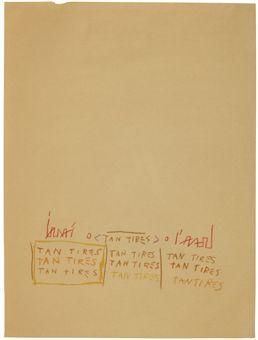 <TAN TIRES>
TAN TIRES
TAN TIRES
TAN TIRES
TAN TIRES
TAN TIRES
TAN TIRES
TAN TIRES
TAN TIRES
TAN TIRES